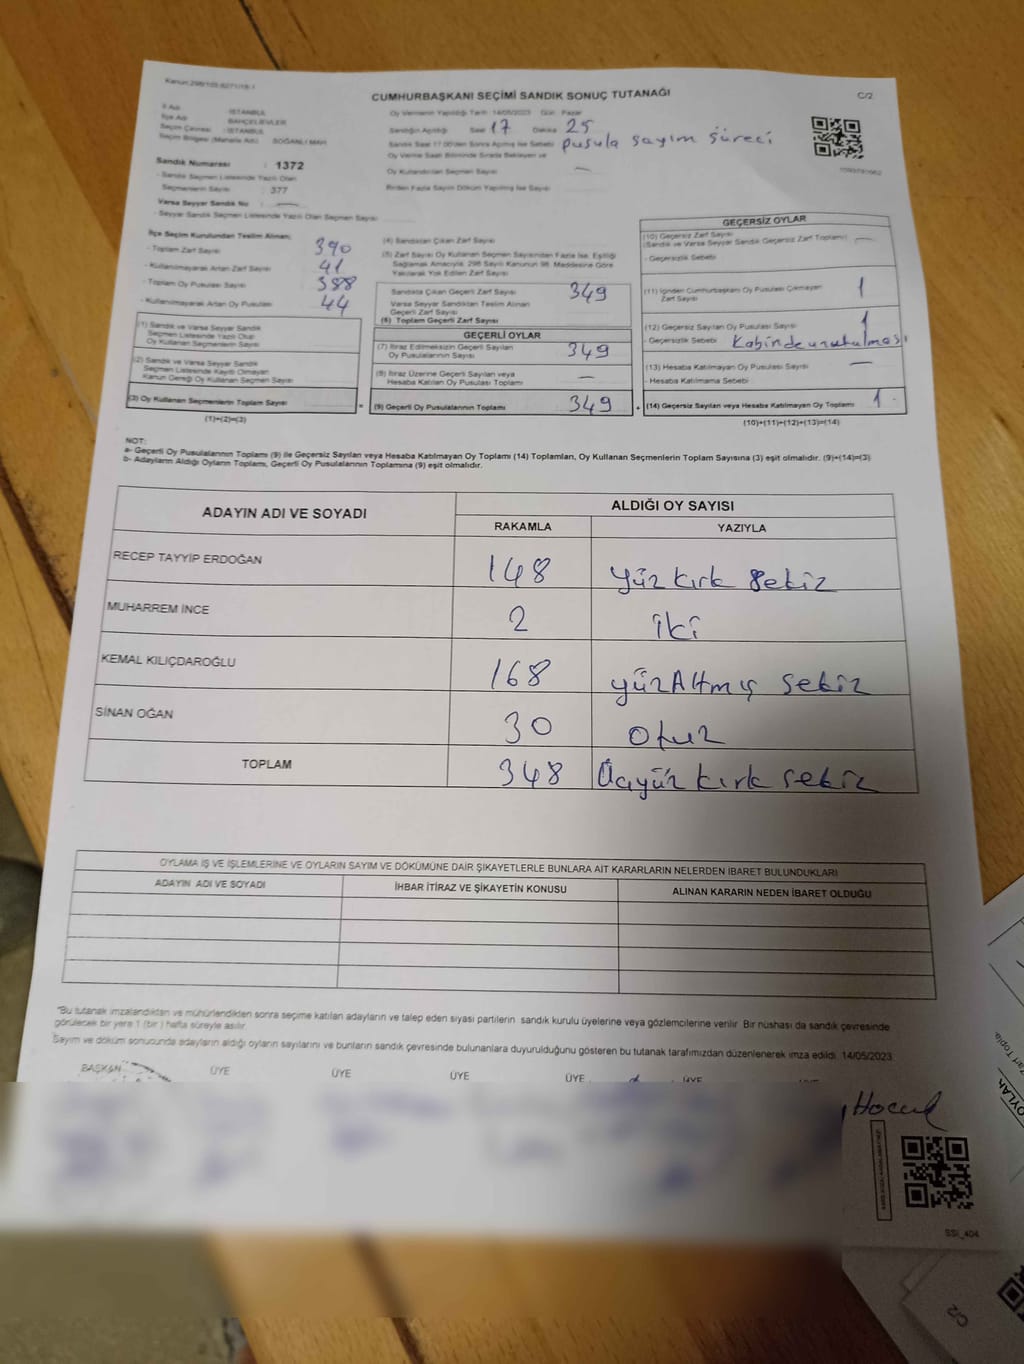 Kanun:298/105-6271/19-1
CUMHURBAŞKANI SEÇİMİ SANDIK SONUÇ TUTANAĞI
C/2
İl Adı : İSTANBUL
İlçe Adı : BAHÇELİEVLER
Seçim Çevresi : İSTANBUL
Seçim Bölgesi (Mahalle Adı) : SOĞANLI MAH.
Sandık Numarası : 1372
- Sandık Seçmen Listesinde Yazılı Olan
Seçmenlerin Sayısı : 377
Varsa Seyyar Sandık No :
- Seyyar Sandık Seçmen Listesinde Yazılı Olan Seçmen Sayısı
Oy Vermenin Yapıldığı Tarih 14/05/2023 Gün Pazar
Sandığın Açıldığı Saat 17 Dakika 25
Sandık Saat 17:00'den Sonra Açılmış İse Sebebi pusula sayım süreci
Oy Verme Saati Bitiminde Sırada Bekleyen ve
Oy Kullandırılan Seçmen Sayısı —
Birden Fazla Sayım Döküm Yapılmış İse Sayısı
İlçe Seçim Kurulundan Teslim Alınan;
- Toplam Zarf Sayısı 390
- Kullanılmayarak Artan Zarf Sayısı 41
- Toplam Oy Pusulası Sayısı 388
- Kullanılmayarak Artan Oy Pusulası 44
(1) Sandık ve Varsa Seyyar Sandık
Seçmen Listesinde Yazılı Olup
Oy Kullanan Seçmenlerin Sayısı
(2) Sandık ve Varsa Seyyar Sandık
Seçmen Listesinde Kayıtlı Olmayan
Kanun Gereği Oy Kullanan Seçmen Sayısı
(3) Oy Kullanan Seçmenlerin Toplam Sayısı
(1)+(2)=(3)
(4) Sandıktan Çıkan Zarf Sayısı
(5) Zarf Sayısı Oy Kullanan Seçmen Sayısından Fazla İse, Eşitliği
Sağlamak Amacıyla, 298 Sayılı Kanunun 98. Maddesine Göre
Yakılarak Yok Edilen Zarf Sayısı
Sandıkta Çıkan Geçerli Zarf Sayısı 349
Varsa Seyyar Sandıktan Teslim Alınan
Geçerli Zarf Sayısı
(6) Toplam Geçerli Zarf Sayısı
GEÇERLİ OYLAR
(7) İtiraz Edilmeksizin Geçerli Sayılan
Oy Pusulalarının Sayısı 349
(8) İtiraz Üzerine Geçerli Sayılan veya
Hesaba Katılan Oy Pusulası Toplamı —
(9) Geçerli Oy Pusulalarının Toplamı 349
GEÇERSİZ OYLAR
(10) Geçersiz Zarf Sayısı
(Sandık ve Varsa Seyyar Sandık Geçersiz Zarf Toplamı) —
- Geçersizlik Sebebi
(11) İçinden Cumhurbaşkanı Oy Pusulası Çıkmayan
Zarf Sayısı 1
(12) Geçersiz Sayılan Oy Pusulası Sayısı 1
- Geçersizlik Sebebi Kabinde unutulması
(13) Hesaba Katılmayan Oy Pusulası Sayısı —
- Hesaba Katılmama Sebebi
(14) Geçersiz Sayılan veya Hesaba Katılmayan Oy Toplamı 1
(10)+(11)+(12)+(13)=(14)
NOT:
a- Geçerli Oy Pusulalarının Toplamı (9) ile Geçersiz Sayılan veya Hesaba Katılmayan Oy Toplamı (14) Toplamları, Oy Kullanan Seçmenlerin Toplam Sayısına (3) eşit olmalıdır. (9)+(14)=(3)
b- Adayların Aldığı Oyların Toplamı, Geçerli Oy Pusulalarının Toplamına (9) eşit olmalıdır.
ADAYIN ADI VE SOYADI
ALDIĞI OY SAYISI
RAKAMLA YAZIYLA
RECEP TAYYİP ERDOĞAN 148 yüz kırk sekiz
MUHARREM İNCE 2 iki
KEMAL KILIÇDAROĞLU 168 yüzAltmış sekiz
SİNAN OĞAN 30 otuz
TOPLAM 348 Üçyüz kırk sekiz
OYLAMA İŞ VE İŞLEMLERİNE VE OYLARIN SAYIM VE DÖKÜMÜNE DAİR ŞİKAYETLERLE BUNLARA AİT KARARLARIN NELERDEN İBARET BULUNDUKLARI
ADAYIN ADI VE SOYADI İHBAR İTİRAZ VE ŞİKAYETİN KONUSU ALINAN KARARIN NEDEN İBARET OLDUĞU
"Bu tutanak imzalandıktan ve mühürlendikten sonra seçime katılan adayların ve talep eden siyasi partilerin sandık kurulu üyelerine veya gözlemcilerine verilir. Bir nüshası da sandık çevresinde
görülecek bir yere 1 (bir) hafta süreyle asılır.
Sayım ve döküm sonucunda adayların aldığı oyların sayılarını ve bunların sandık çevresinde bulunanlara duyurulduğunu gösteren bu tutanak tarafımızdan düzenlenerek imza edildi. 14/05/2023
BAŞKAN ÜYE ÜYE ÜYE ÜYE ÜYE
SSİ_404
C/2